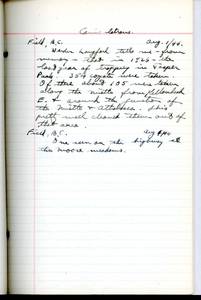 Canis latrans.
Field, B.C. Aug. 1/44.
Warden Langford tells me - from
memory - that in 1926 - the
last year of trapping in Jasper
Park - 254 coyotes were taken.
Of these about 105 were taken
along the
E. & around the junction of
the & Athabasca. This
pretty well cleaned them out of
that area.
Field, B.C. Aug /44
One seen on the highway at
the moose meadows.